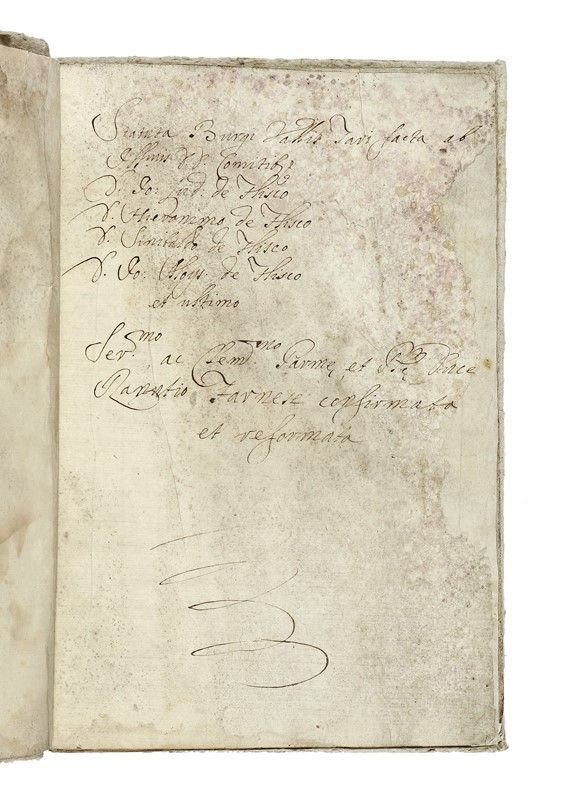 Statuta Burgi Vallis Tari facta ab
Illmis D. D. Comitibs
D. Jo: Lud. de Flisco
D. Hieronimo de Flisco
D. Sinibaldo de Flisco
D. Jo: Aloys. de Flisco
et ultimo
Ser.mo ac Clem.mo Parmę et Plę Duce
Ranutio Farnese confirmata
et reformata